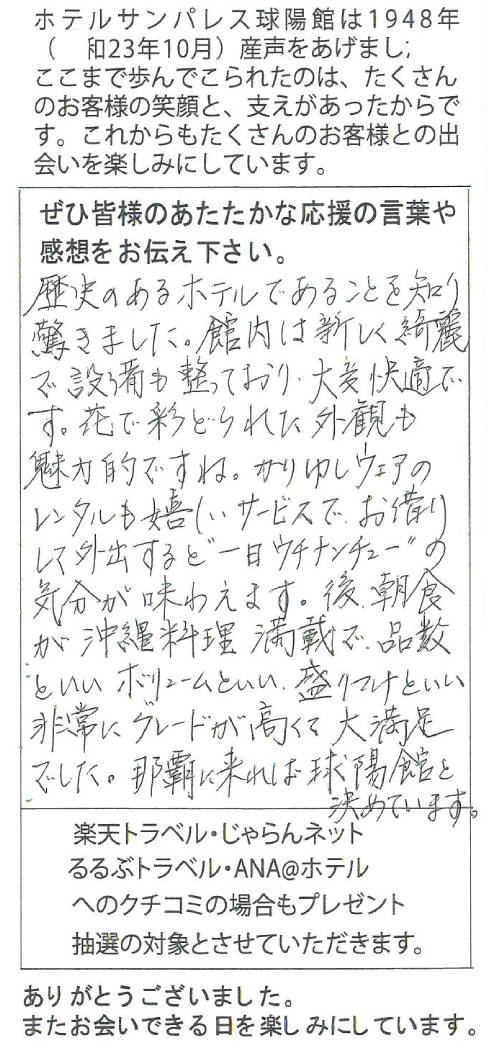 ホテルサンパレス球陽館は1948年
（　和23年10月）産声をあげまし
ここまで歩んでこられたのは、たくさん
のお客様の笑顔と、支えがあったからで
す。これからもたくさんのお客様との出
会いを楽しみにしています。
ぜひ皆様のあたたかな応援の言葉や
感想をお伝え下さい。
歴史のあるホテルであることを知り
驚きました。館内は新しく綺麗
で設備も整っており、大変快適で
す。花で彩どられた外観も
魅力的ですね。かりゆしウェアの
レンタルも嬉しいサービスで、お借り
して外出すると"一日ウチナンチュー"の
気分が味わえます。後、朝食
が沖縄料理満載で、品数
といいボリュームといい、盛りつけといい
非常にグレードが高くて大満足
でした。那覇に来れば球陽館と
決めています。
楽天トラベル・じゃらんネット
るるぶトラベル・ANA@ホテル
へのクチコミの場合もプレゼント
抽選の対象とさせていただきます。
ありがとうございました。
またお会いできる日を楽しみにしています。